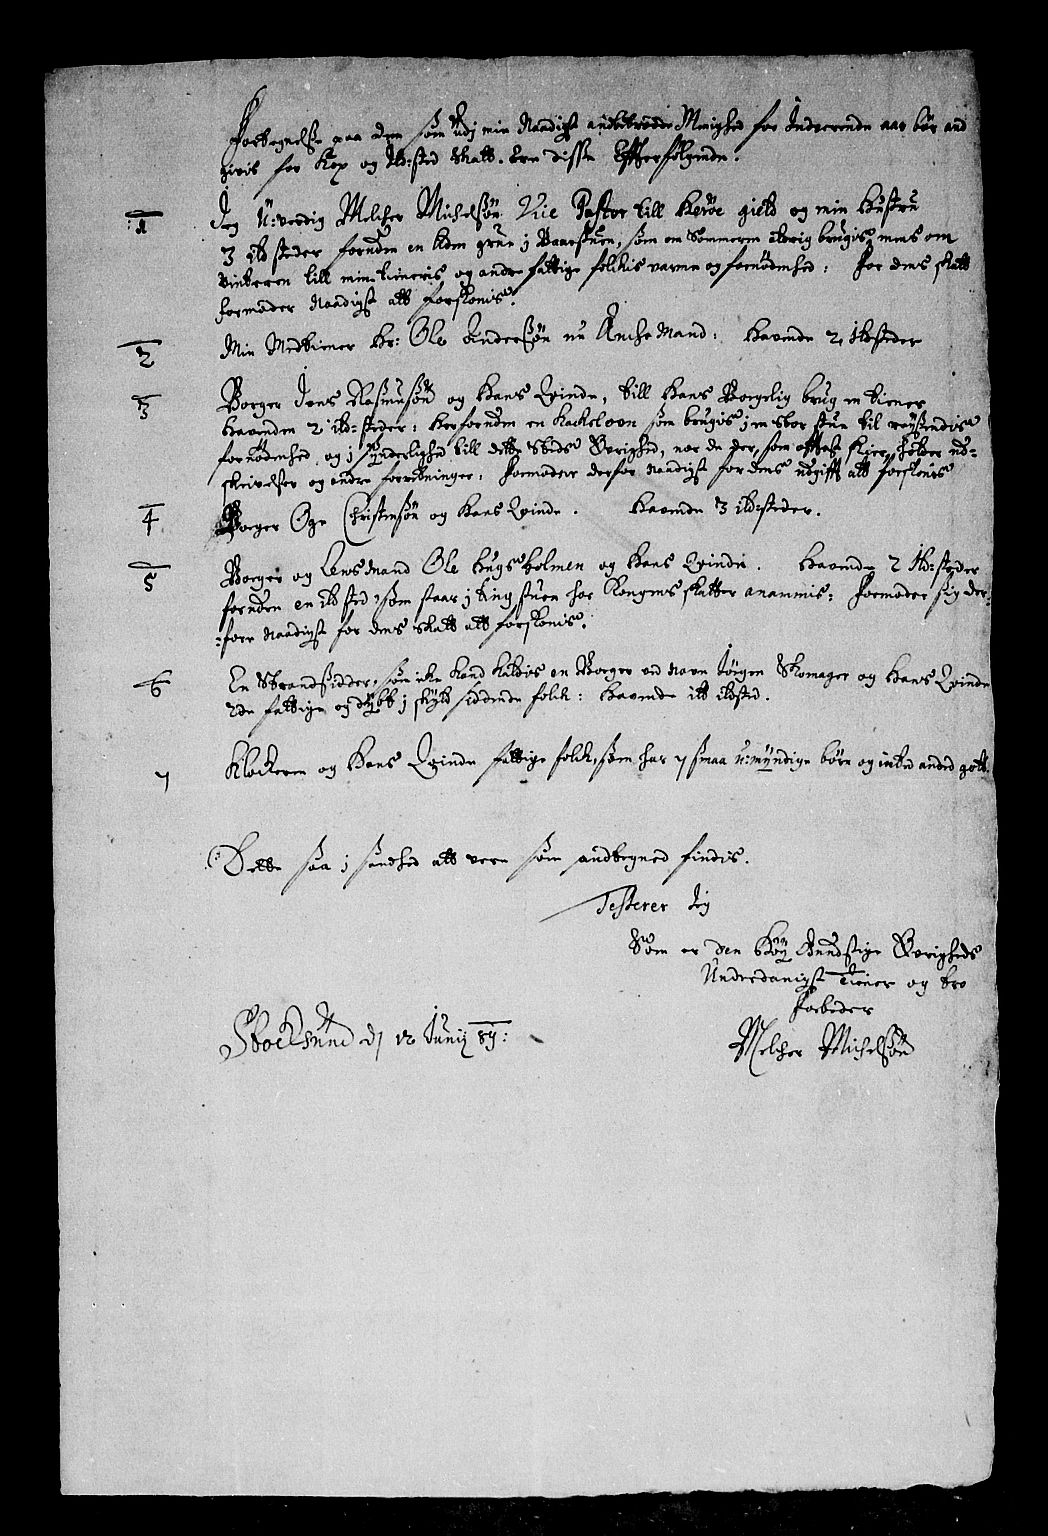 Fortegnelse paa dem som udj min Naadigst andbetroede Menighed for Inderende aar bør and
givis for Kop og Ild:sted skatt. Ere disse Effterfølgende.
1 Jeg U:verdig Melcher Michelsøn Vice Pastor till Herøe gield og min Hustru
3 ild steder foruden en liden grue j Baarstuen, som om Sommeren icke brugis, mens om
vinteren till mine tieneris og andre fattige folkis varme og fornødenhed: for dens skatt
formoder Naadigst att forskonis.
2 Min Medtiener Hr: Ole Anderssøn nu Enche Mand: Havende 2 Ildsteder
3 Borger Jens Rasmussøn og Hans Qvinde, till Hans Borgelig brug en tiener
havenden 2 ild-steder: Herforuden en Kackeloen som brugis j en stor stue til reysendis
fornødenhed, og j synderlighed till dette Steds Øvrighed, naar de her, som offtest skier, holder ud-
skrivelser og andre forretninger: formoder derfor Naadigst for dens udgifft att forskonis
4 Borger Oge Christensøn og Hans Qvinde. Havende 3 ild:steder.
5 Borger og Lensmand Ole Hugsholmen og Hans Qvinde. Havende 2 Ild:steder
foruden en ild sted, som staar j ting stuen hvor Kongens skatter anammis: Formoder sig der-
:fore Naadigst for dens skatt att forskonis.
6 En Strandsidder, som icke kand kaldis en Borger ved Navn Jørgen Skomager og Hans Qvinde
Ere fattige og dybt j skyld siddende folck: Havende itt ildsted.
7 Klockeren og Hans Qvinde fattige folck, som har 7 smaa u:myndige børn og intet andet gott.
Dette saa j sandhed att vere som andtegned findis.
Testerer Jeg
Som er den Høy Gunstige Øvrigheds
Underdanigst tiener og tro
forbeder
Stocksund d 12 Junij 89:
Melcher Michelsøn